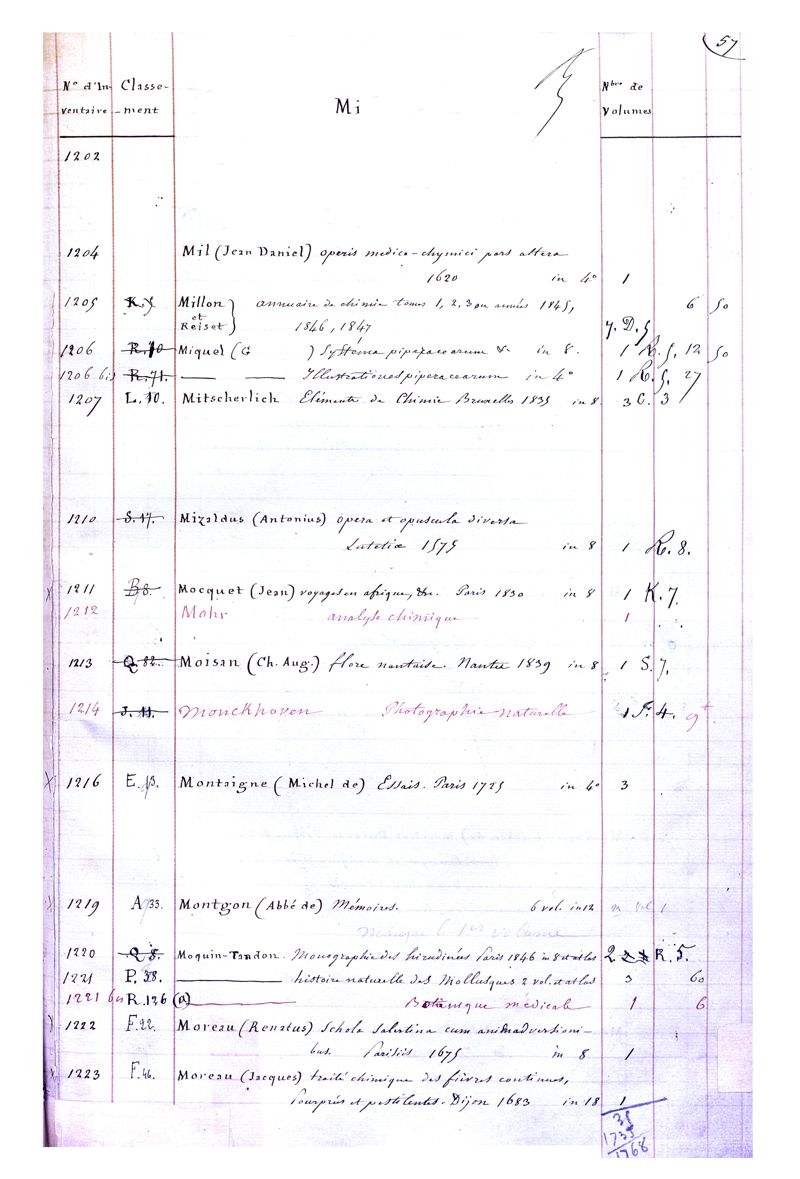 57
N° d'In- Classe- Nbre de
ventaire -ment Mi Volumes
1202
1204 Mil (Jean Daniel) operis medico-chymici pars altera
1620 in 4° 1
1205 K. 5 Millon annuaire de chimie tomes 1, 2, 3 ou années 1845, 6 50
et
Reiset 1846, 1847 7. D. 5
1206 R. 70 Miquel (G ) Systéma piperacearum &. in 8. 1 R. 5. 12 50
1206 bis R. 71. — — Illustrationes piperacearum in 4° 1 R. 5. 27
1207 L. 10. Mitscherlich Eléments de Chimie Bruxelles 1835 in 8. 3 C. 3
1210 S. 17. Mizaldus (Antonius) opera et opuscula diversa
Lutetiæ 1575 in 8 1 R. 8.
1211 B 8. Mocquet (Jean) voyages en afrique, &c. Paris 1830 in 8 1 K. 7.
1212 Mohr analyse chimique 1
1213 Q 82. Moisan (Ch. Aug.) flore nantaise. Nantes 1839 in 8 1 S. 7.
1214 J. 11. Monckhoven Photographie naturelle 1 F. 4. 9
1216 E. 13. Montaigne (Michel de) Essais. Paris 1725 in 4° 3
1219 A 33. Montgon (Abbé de) Mémoires. 6 vol. in 12
manque le 1er volume
1220 Q 8. Moquin-Tandon. Monographie des hirudinées Paris 1846 in 8 et atlas 2 R. 5.
1221 P. 38. — histoire naturelle des Mollusques 2 vol. et atlas 3 60
1221 bis R. 126 (a) — Botanique médicale 1 6
1222 F. 22. Moreau (Renatus) Schola Salertina cum animadversioni-
bus. Parisiis 1675 in 8 1
1223 F. 46. Moreau (Jacques) traité chimique des fièvres continues,
pourprés et pestilentes. Dijon 1683 in 18 1
35
1733
1768